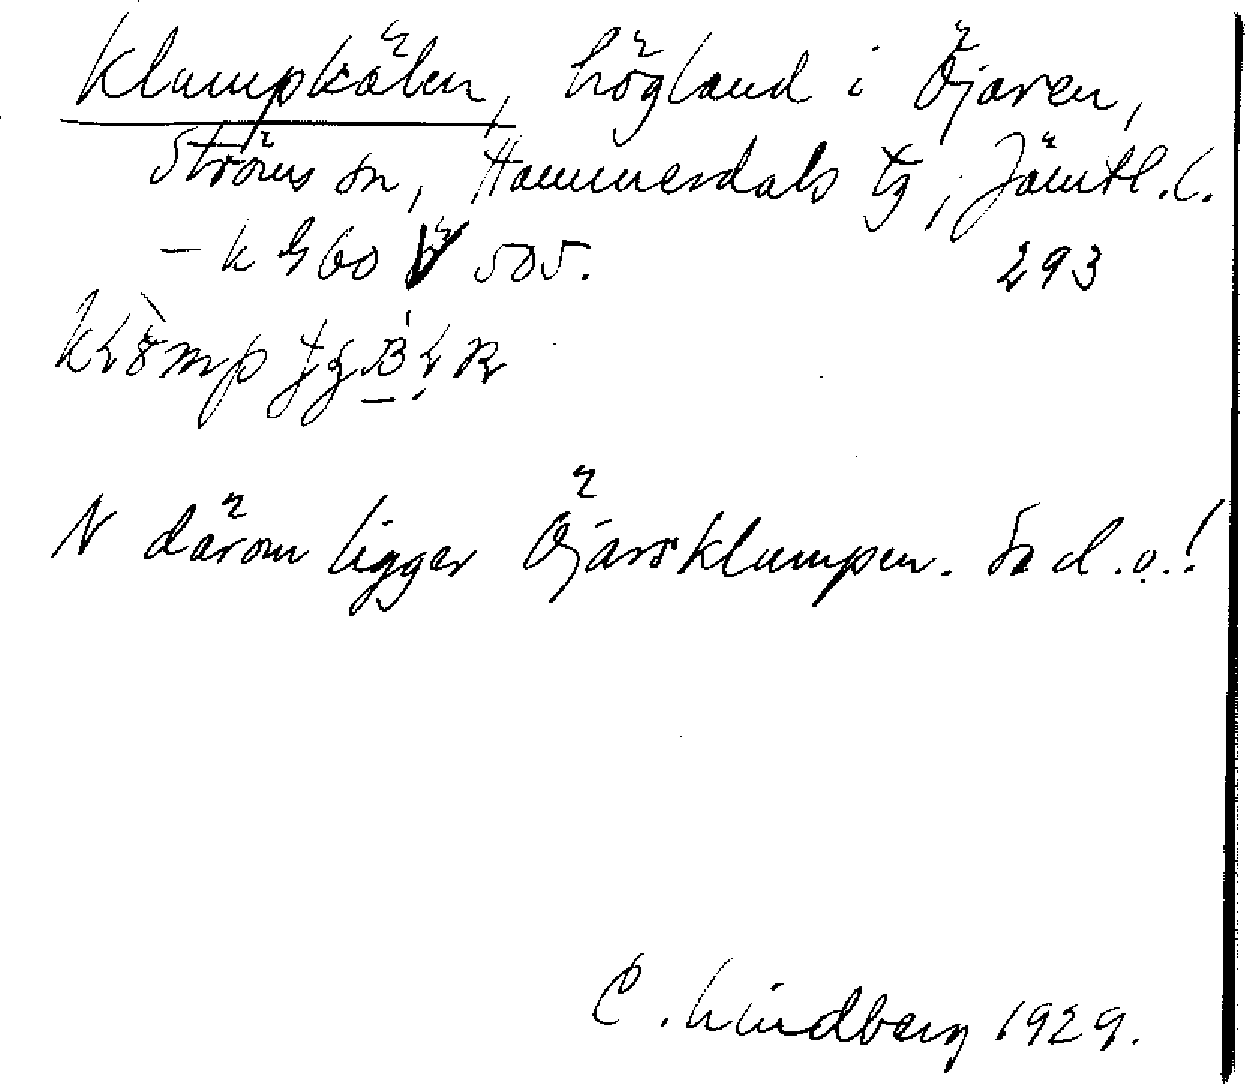 Klumpkälen, högland i Öjaren,
Ströms sn, Hammerdals tg, Jämtl. l.
– k G 60 V 505. 293
N därom ligger Öjarsklumpen. Sa d.o.!
C. Lindberg 1929.